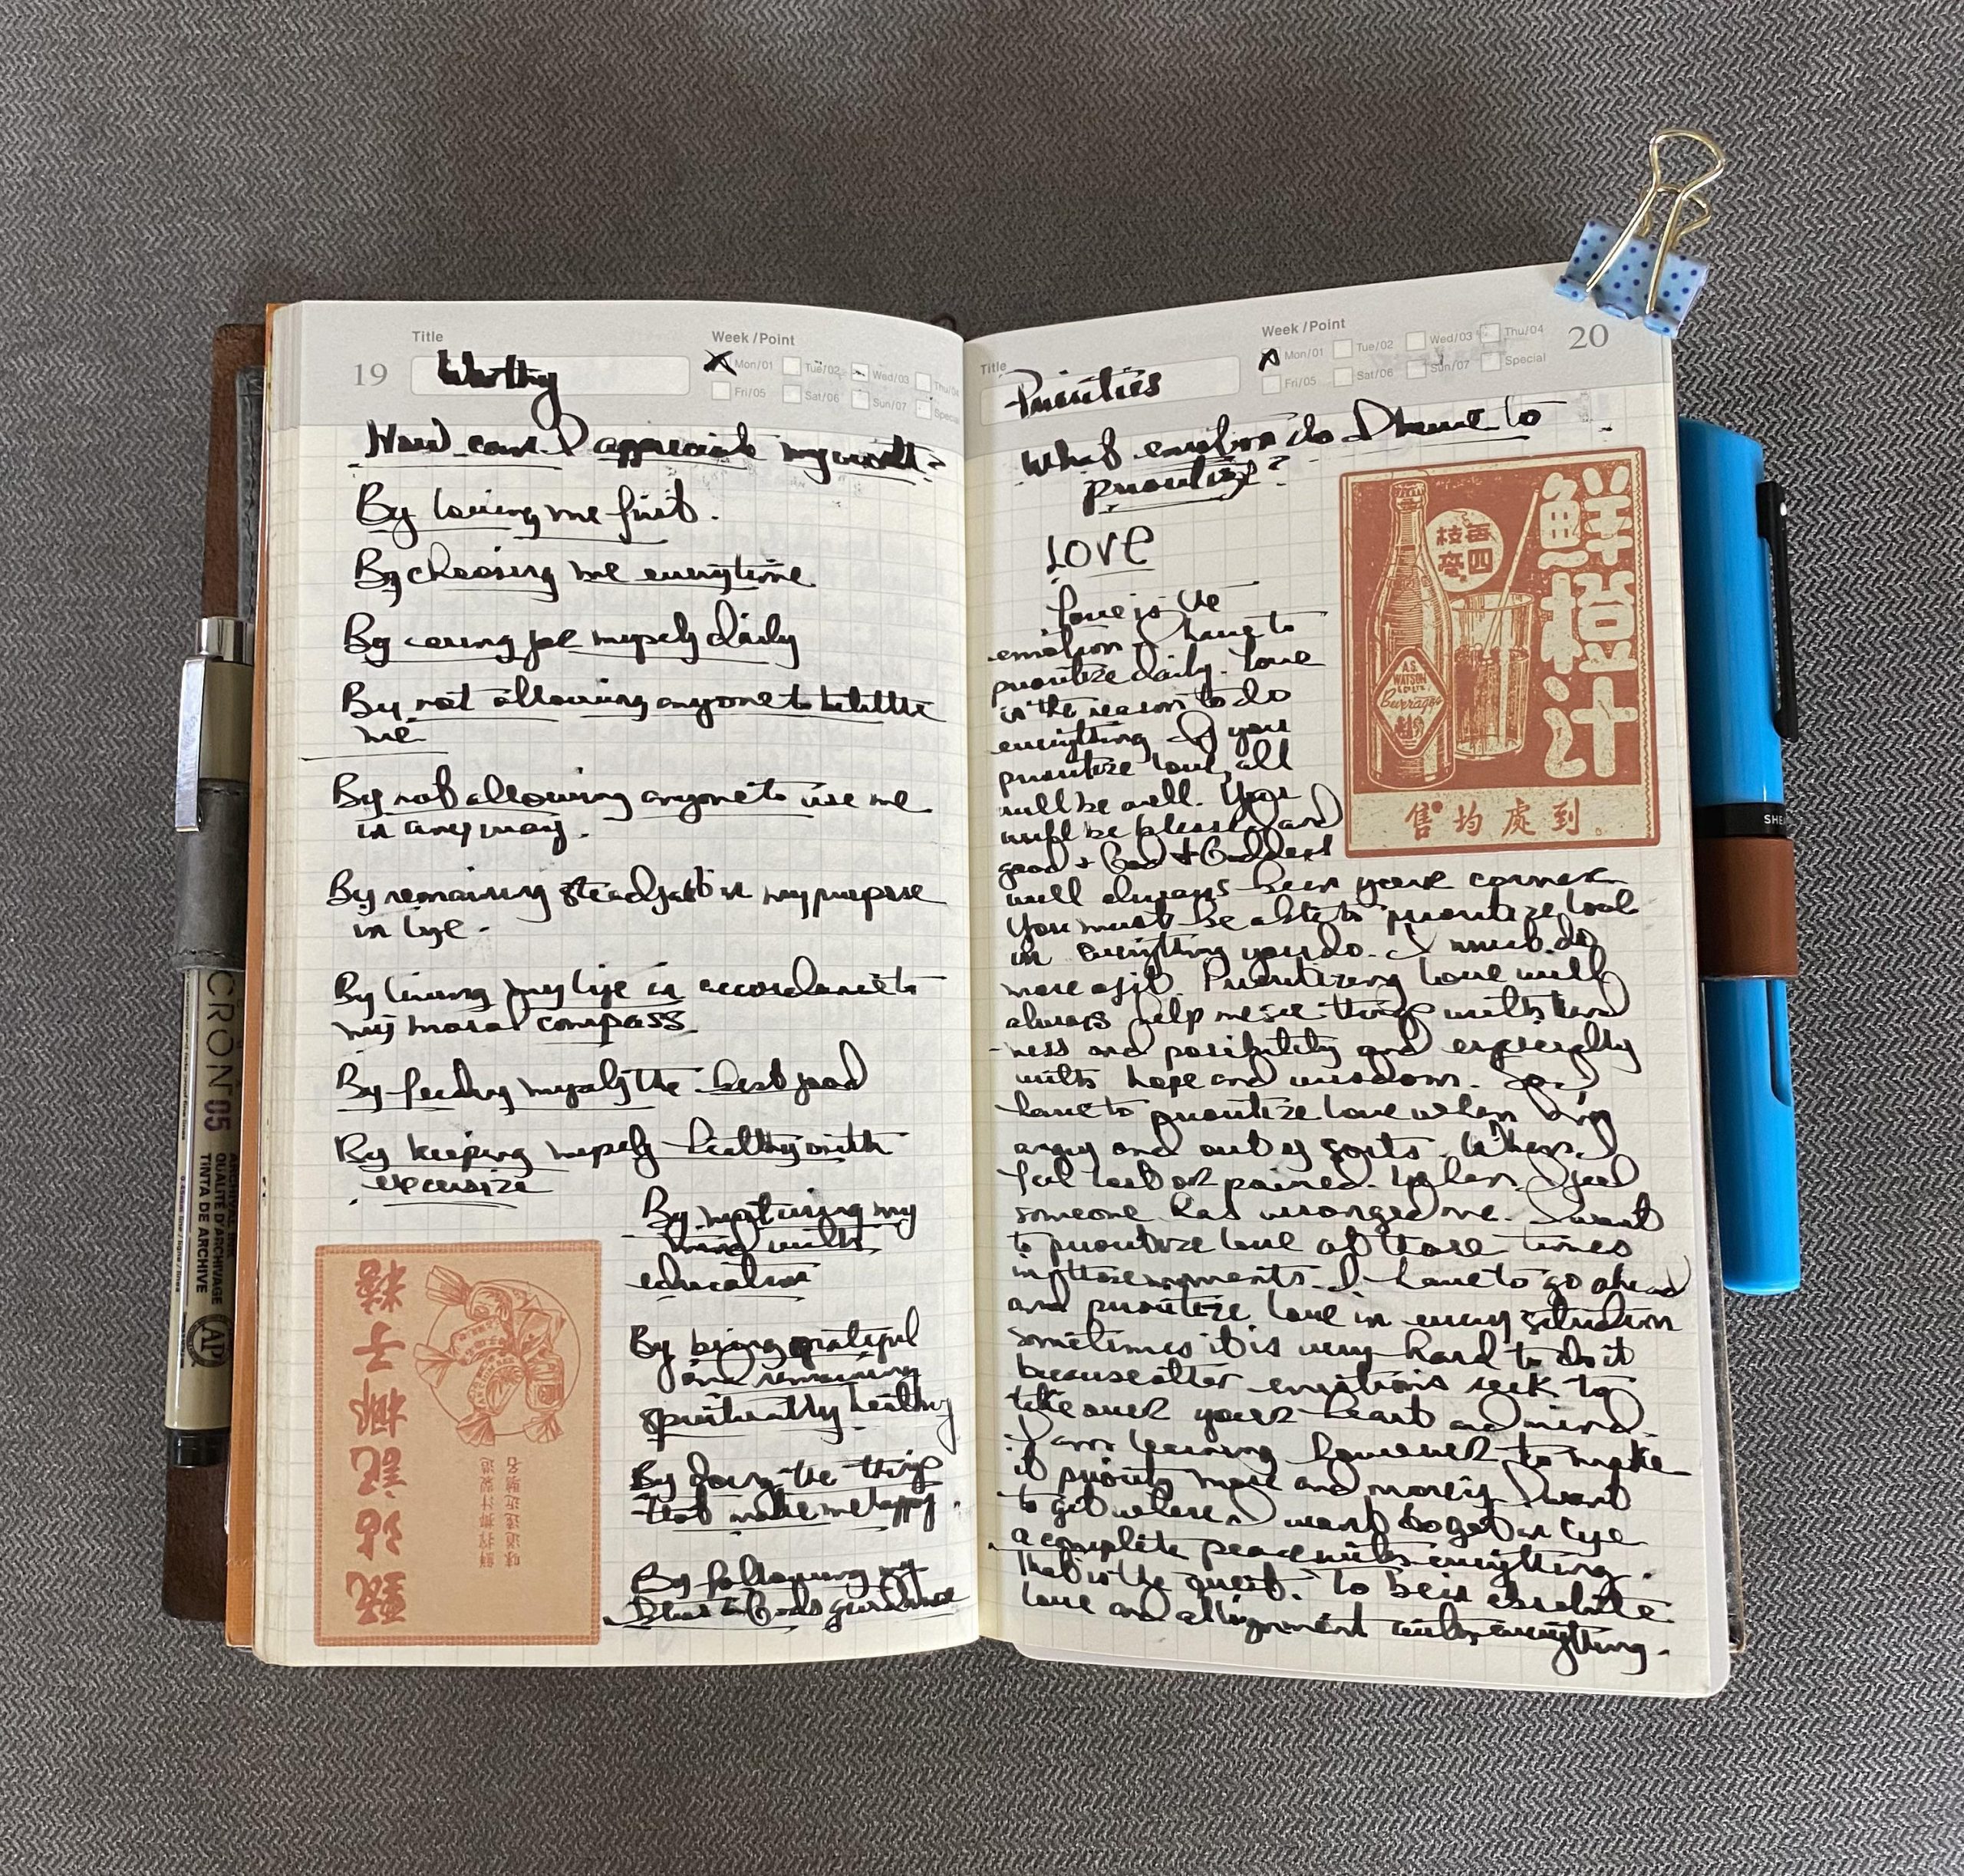 19
Title
Worthy
Week/Point
Mon/01 Tue/02 Wed/03 Thu/04
Fri/05 Sat/06 Sun/07 Special
How can I appreciate my worth?
By loving me first.
By choosing me everytime
By caring for myself daily
By not allowing anyone to belittle
me
By not allowing anyone to use me
in any way.
By remaining steadfast in my purpose
in life.
By living my life in accordance to
my moral compass
By feeding myself the best food
By keeping myself healthy with
excersize
By nurturing my
mind with
education
By being grateful
and remaining
spiritually healthy
By doing the things
that make me happy.
By following my
God's guidance
甄沾記椰子糖
味道遠近馳名
鮮榨椰汁製造
Title
Priorities
Week/Point
Mon/01 Tue/02 Wed/03 Thu/04
Fri/05 Sat/06 Sun/07 Special
20
What emotion do I have to
prioritize?
LOVE
Love is the
emotion I have to
prioritize daily. Love
is the reason to do
everything. If you
prioritize love, all
will be well. You
will be blessed and
good + God + Goddess
will always be in your corner
You must be able to prioritize love
in everything you do. I must do
more of it. Prioritizing love will
always help me see things with kind
ness and possibility and especially
with hope and wisdom. So I
have to prioritize love when I'm
angry and out of sorts. When I
feel lost or pained. When I feel
someone has wronged me. I want
to prioritize love at those times
in those moments. I have to go ahead
and prioritize love in every situation
sometimes it is very hard to do it
because other emotions seek to
take over your heart and mind.
I am learning however to make
it priority more and more if I want
to get where I want to get in life
a complete peace with everything.
That is the quest. To be in absolute
love and allignment with everything.
鮮橙汁
每枝四毫
A.S.
WATSON
& CO LTD.
Beverages
到處均售
CRON 05
ARCHIVAL INK
QUALITÉ D'ARCHIVAGE
TINTA DE ARCHIVE
AP
SHE